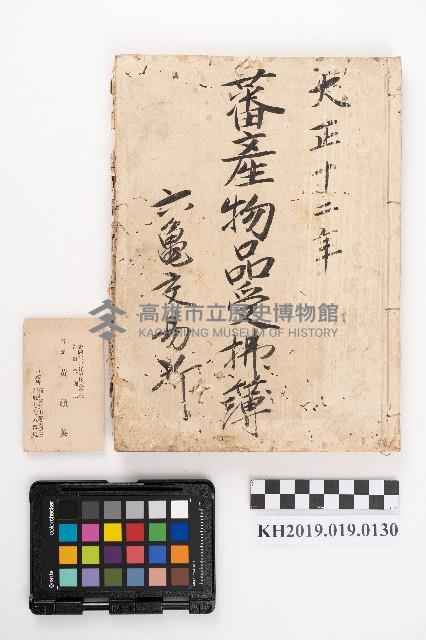 大正十二年
蕃產物品受拂簿
六龜交易所
高雄市立歷史博物館
KAOHSIUNG MUSEUM OF HISTORY
黃 鎮 英
KH2019.019.0130
colorchecker
x-rite